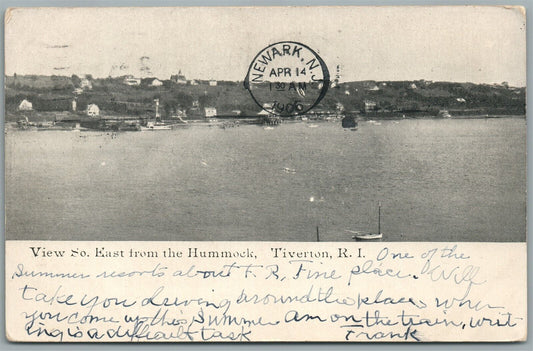 NEWARK, N.J.
APR 14
1 30 AM
1906
View So. East from the Hummock, Tiverton, R. I.
One of the
Summer resorts about F. R. Fine place. Will
take you driving around the place when
you come up this Summer. Am on the train, writ
ing is a difficult task
Frank